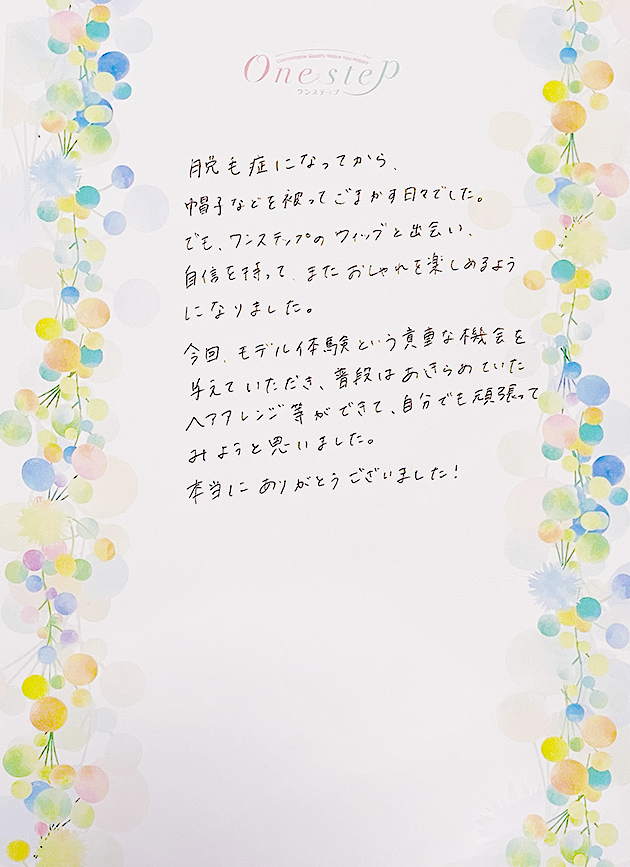 One step
ワンステップ
脱毛症になってから、
帽子などを被ってごまかす日々でした。
でも、ワンステップのウィッグと出会い、
自信を持って、またおしゃれを楽しめるよう
になりました。
今回、モデル体験という貴重な機会を
与えていただき、普段はあきらめていた
ヘアアレンジ等ができて、自分でも頑張って
みようと思いました。
本当にありがとうございました!